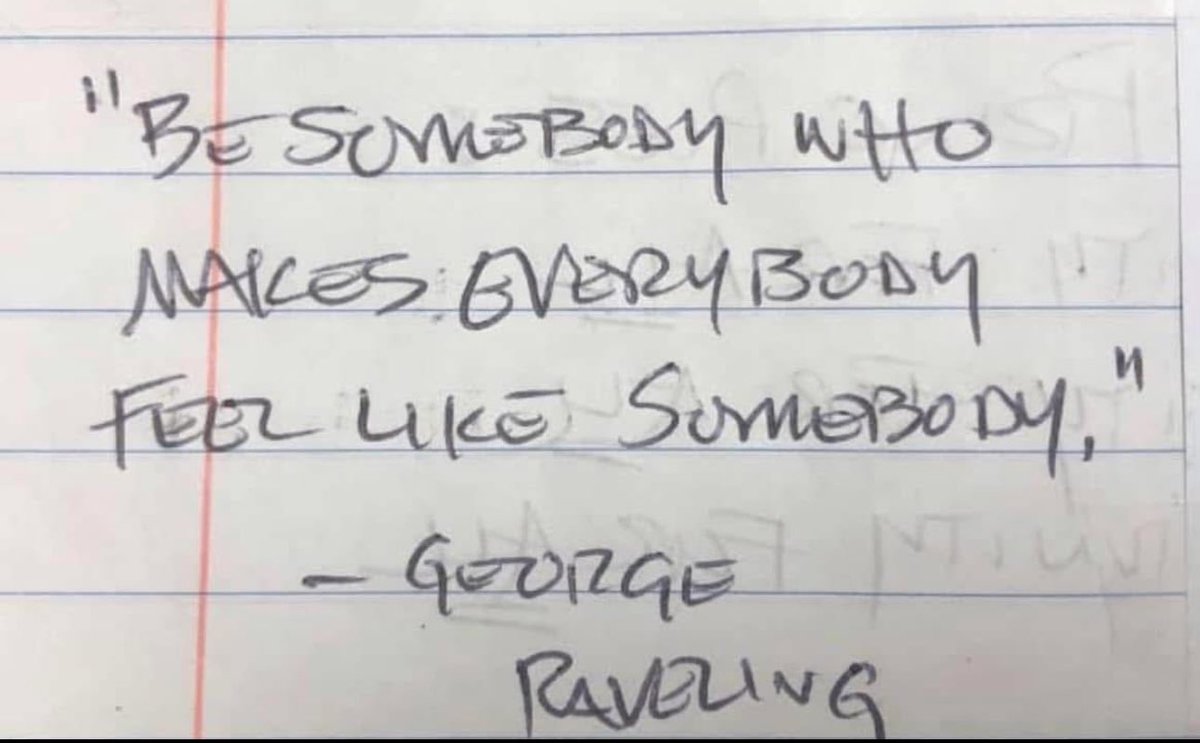 "BE SOMEBODY WHO
MAKES EVERYBODY
FEEL LIKE SOMEBODY."
- GEORGE
RAVELING